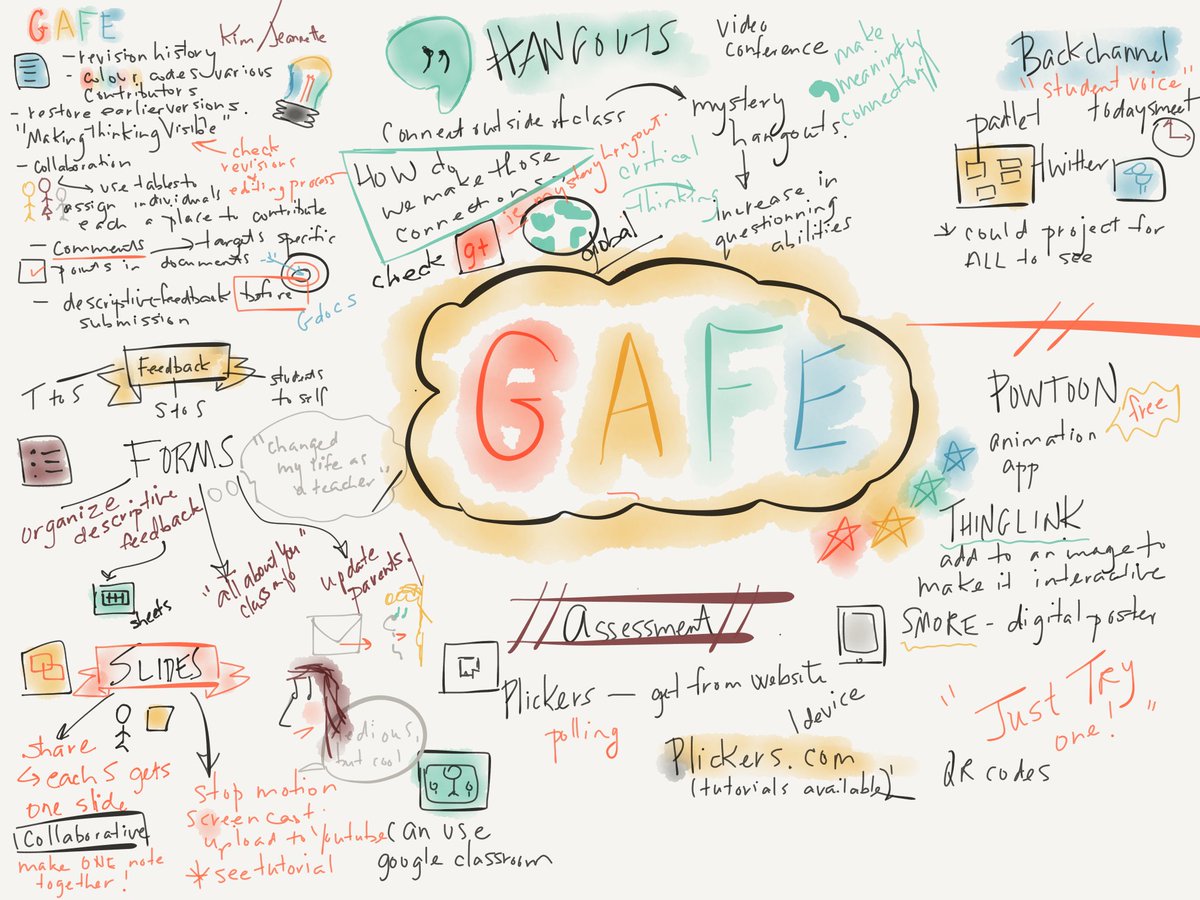 GAFE
Kim/Jeannette
- revision history
- colour codes various
contributors
- restore earlier versions.
"Making Thinking Visible"
- collaboration
check
revisions
editing process
use tables to
assign individuals
each a place to contribute
- Comments → targets specific
points in documents
- descriptive feedback before
submission
Gdocs
Feedback
T to S
S to S
students
to self
FORMS
"changed
my life as
a teacher"
organize
descriptive
feedback
sheets
"all about you"
class info
update
parents!
SLIDES
share
each S gets
one slide
Collaborative
make ONE note
together!
stop motion
screencast
upload to youtube
* see tutorial
tedious,
but cool
HANGOUTS
video
conference
make
meaning w/
connection
Connect outside of class
mystery
hangouts.
How do
we make those
connections?
ie. mystery hangout.
critical
thinking
increase in
questionning
abilities
check g+
global
GAFE
Assessment
Plickers – get from website
polling
1 device
Plickers.com
(tutorials available)
can use
google classroom
Backchannel
"student voice"
padlet
todaysmeet
twitter
* could project for
ALL to see
POWTOON
free
animation
app
THINGLINK
add to an image to
make it interactive
SMORE - digital poster
"Just Try
one!"
QR codes